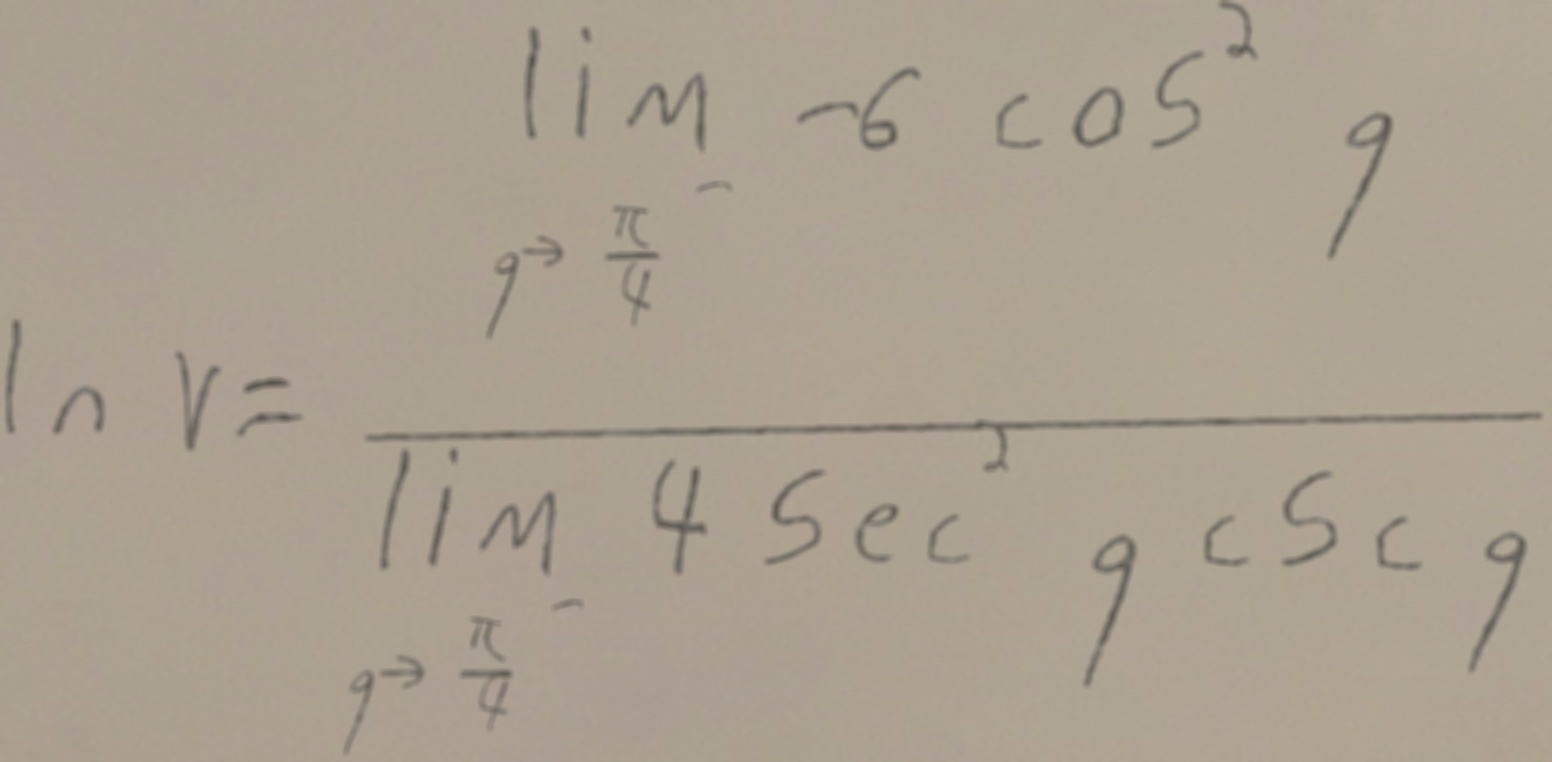 ln v = \frac{\lim_{q \to \frac{\pi}{4}^-} -6 \cos^2 q}{\lim_{q \to \frac{\pi}{4}^-} 4 \sec^2 q \csc q}